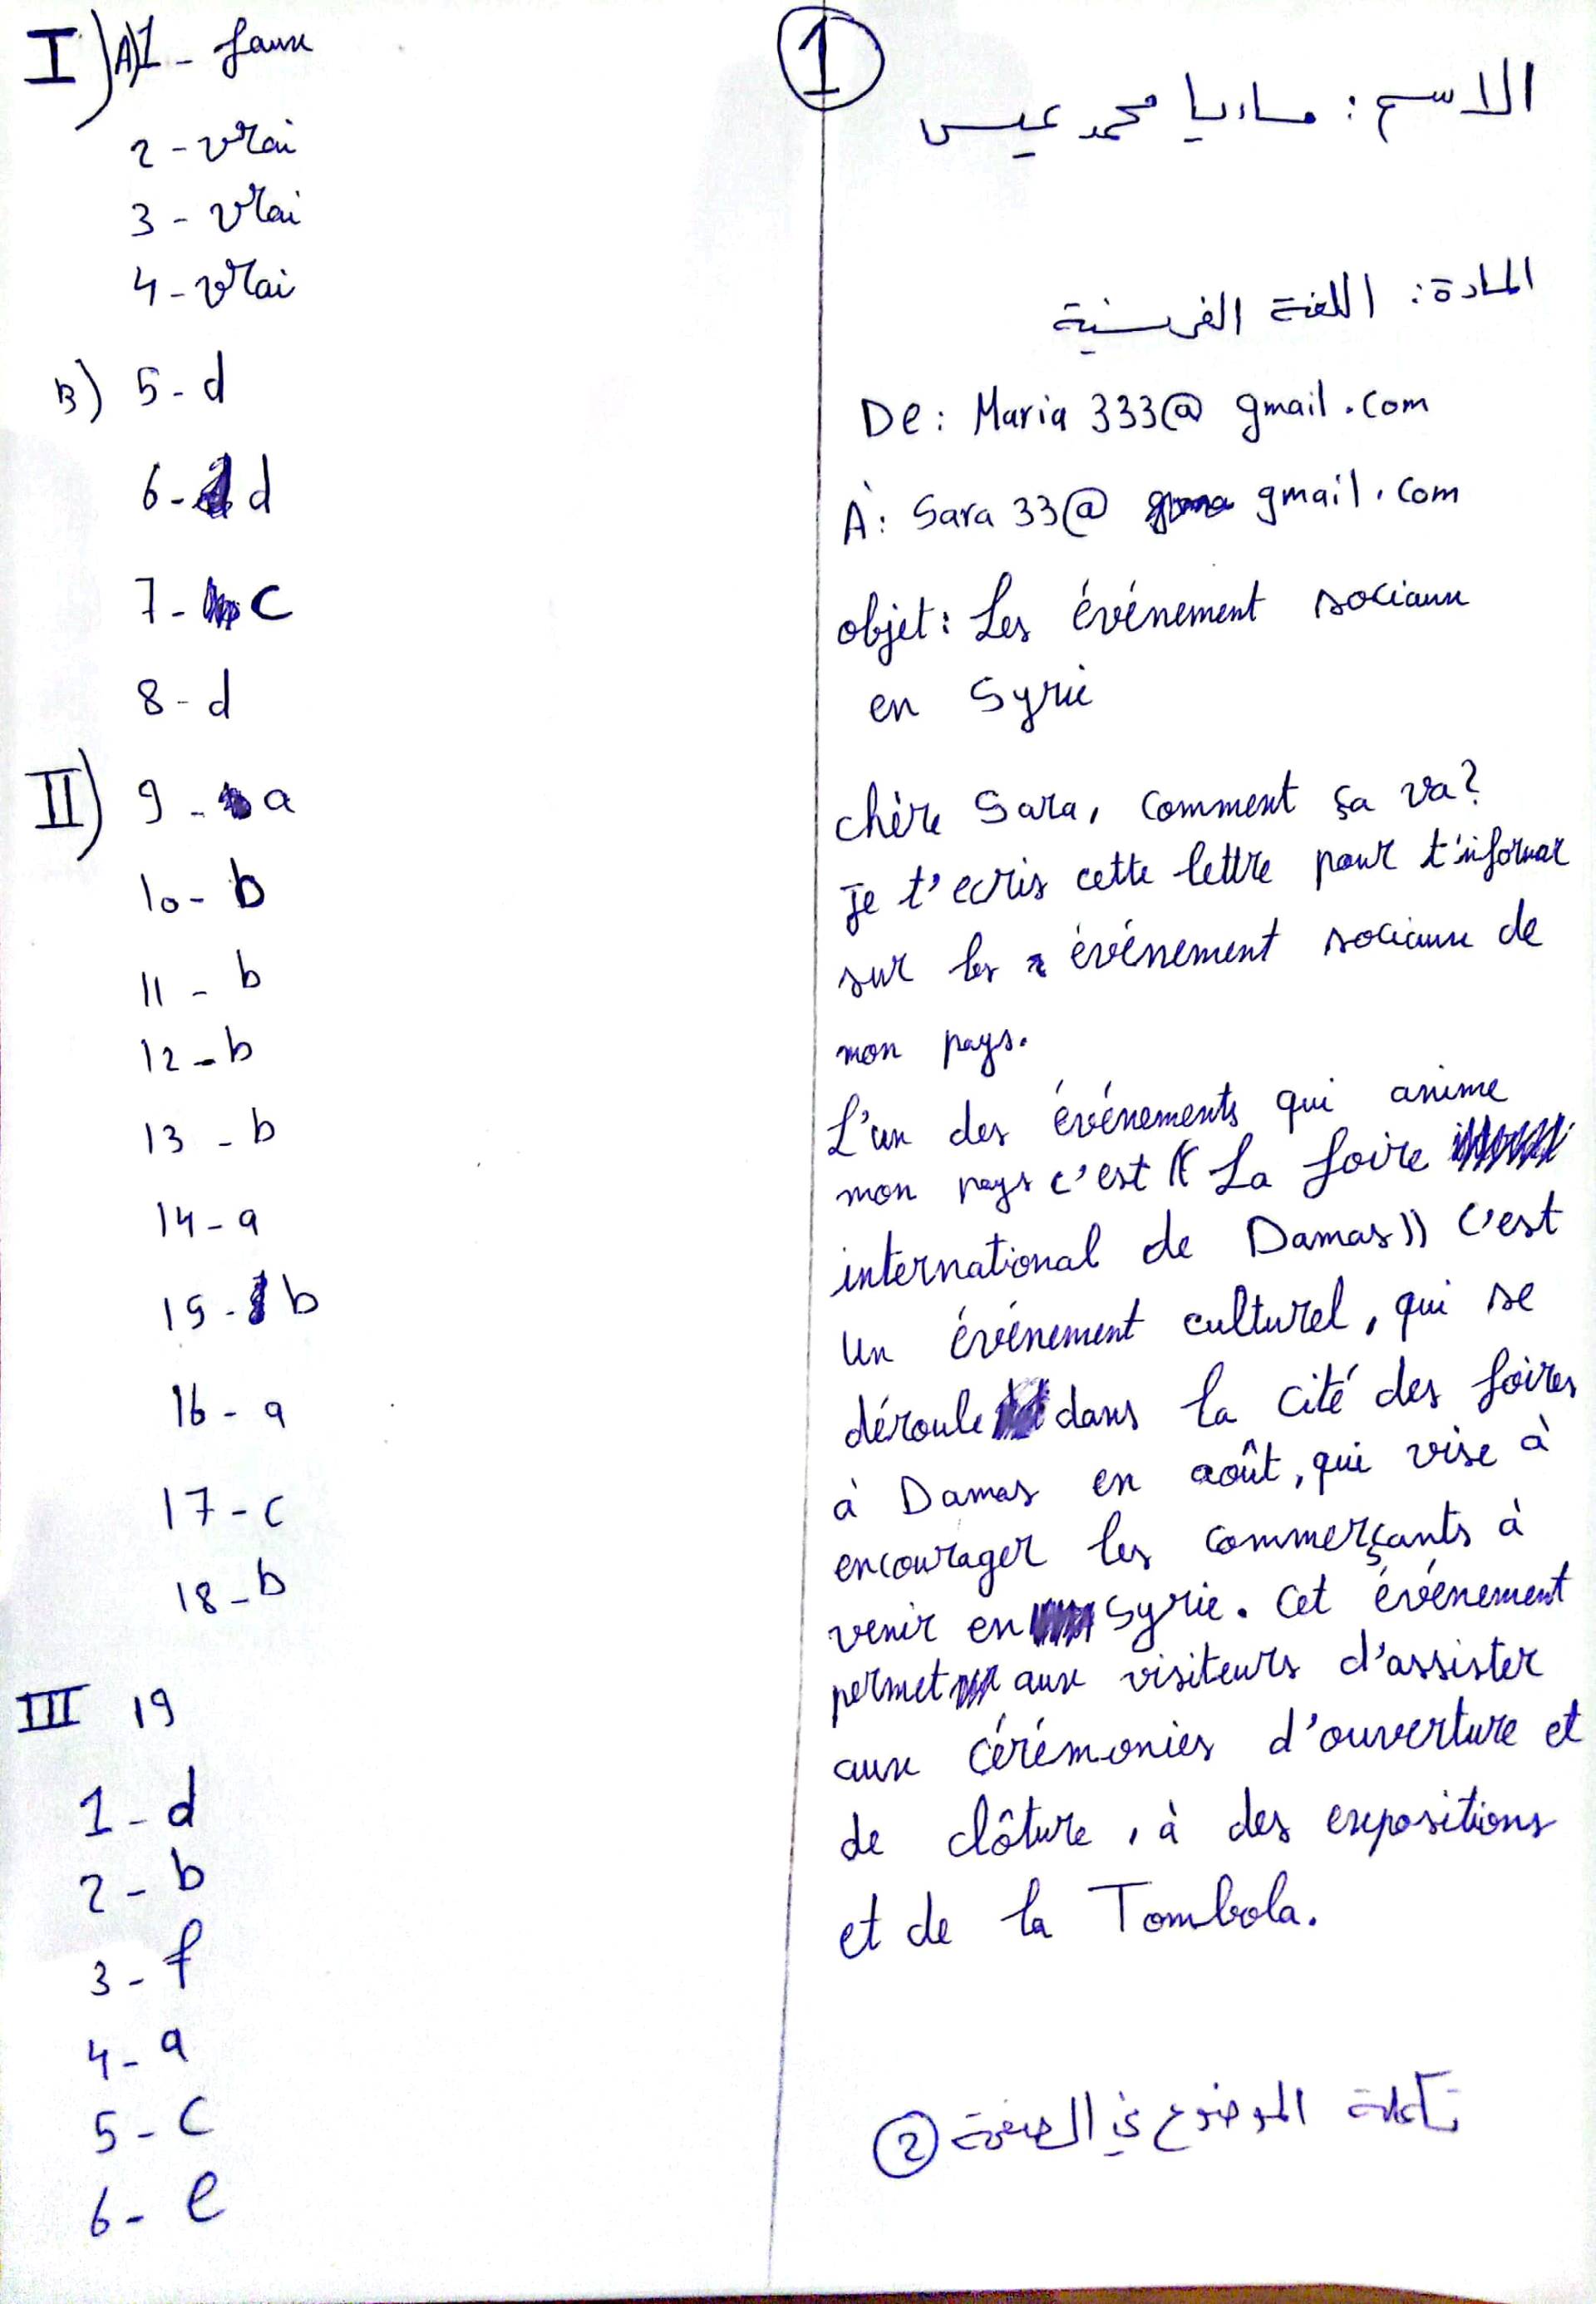 I) A) 1 - faux
2 - vrai
3 - vrai
4 - vrai
B) 5 - d
6 - d
7 - c
8 - d
II) 9 - a
10 - b
11 - b
12 - b
13 - b
14 - a
15 - b
16 - a
17 - c
18 - b
III 19
1 - d
2 - b
3 - f
4 - a
5 - c
6 - e
1
الاسم : ماريا محمد عيسى
المادة : اللغة الفرنسية
De : Maria 333@ gmail.com
À : Sara 33@ gmail.com
objet : Les événement sociaux
en Syrie
chère Sara, comment ça va ?
Je t'ecris cette lettre pour t'informer
sur les événement sociaux de
mon pays.
L'un des événements qui anime
mon pays c'est (( La foire
international de Damas )) c'est
un événement culturel, qui se
déroule dans la cité des foires
à Damas en août, qui vise à
encourager les commerçants à
venir en Syrie. Cet événement
permet aux visiteurs d'assister
aux cérémonies d'ouverture et
de clôture, à des expositions
et de la Tombola.
تكملة الموضوع في الصفحة 2